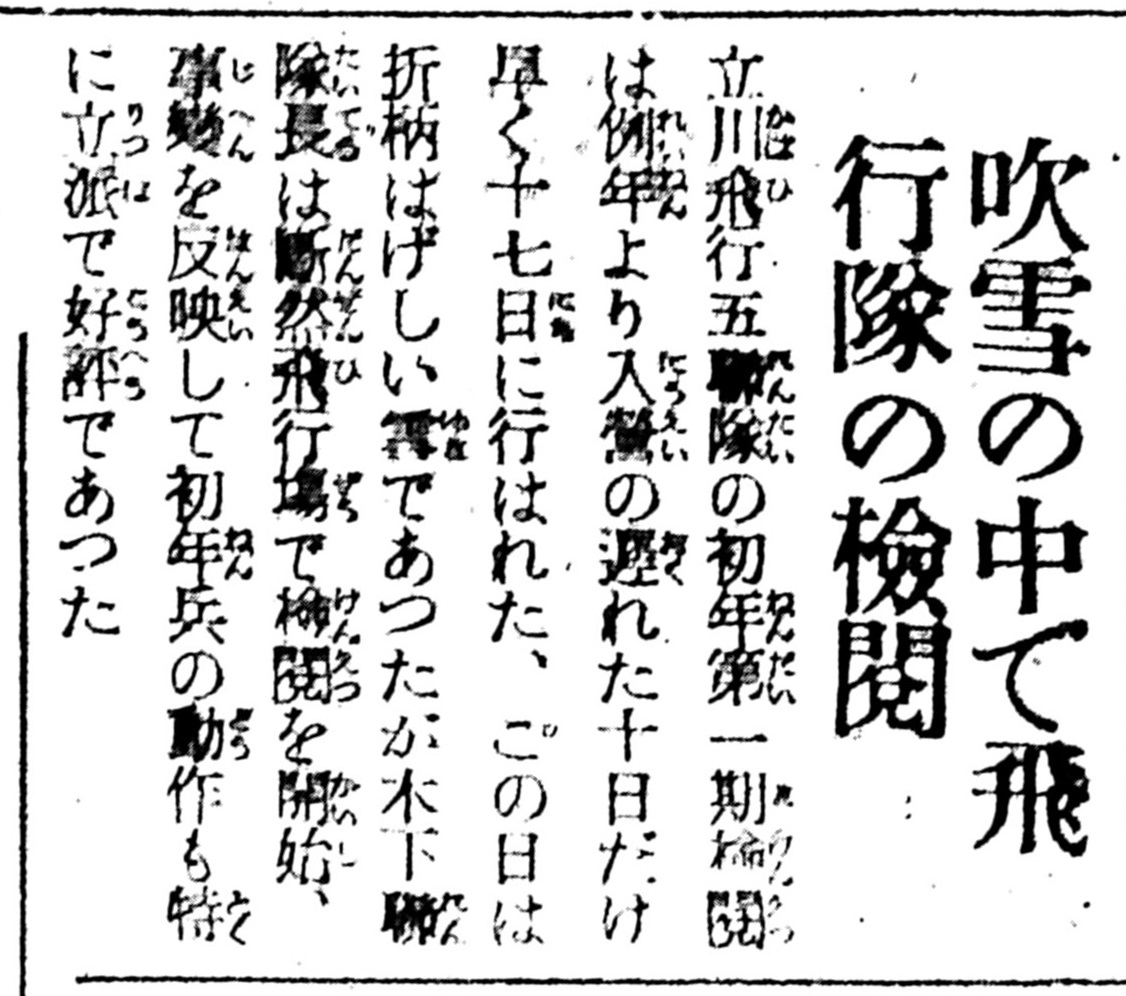 吹雪の中で飛
行隊の檢閲
立川飛行五聯隊の初年第一期檢閲
は例年より入營の遲れた十日だけ
早く十七日に行はれた、この日は
折柄はげしい雪であつたが木下聯
隊長は斷然飛行場で檢閲を開始、
事變を反映して初年兵の動作も特
に立派で好評であつた